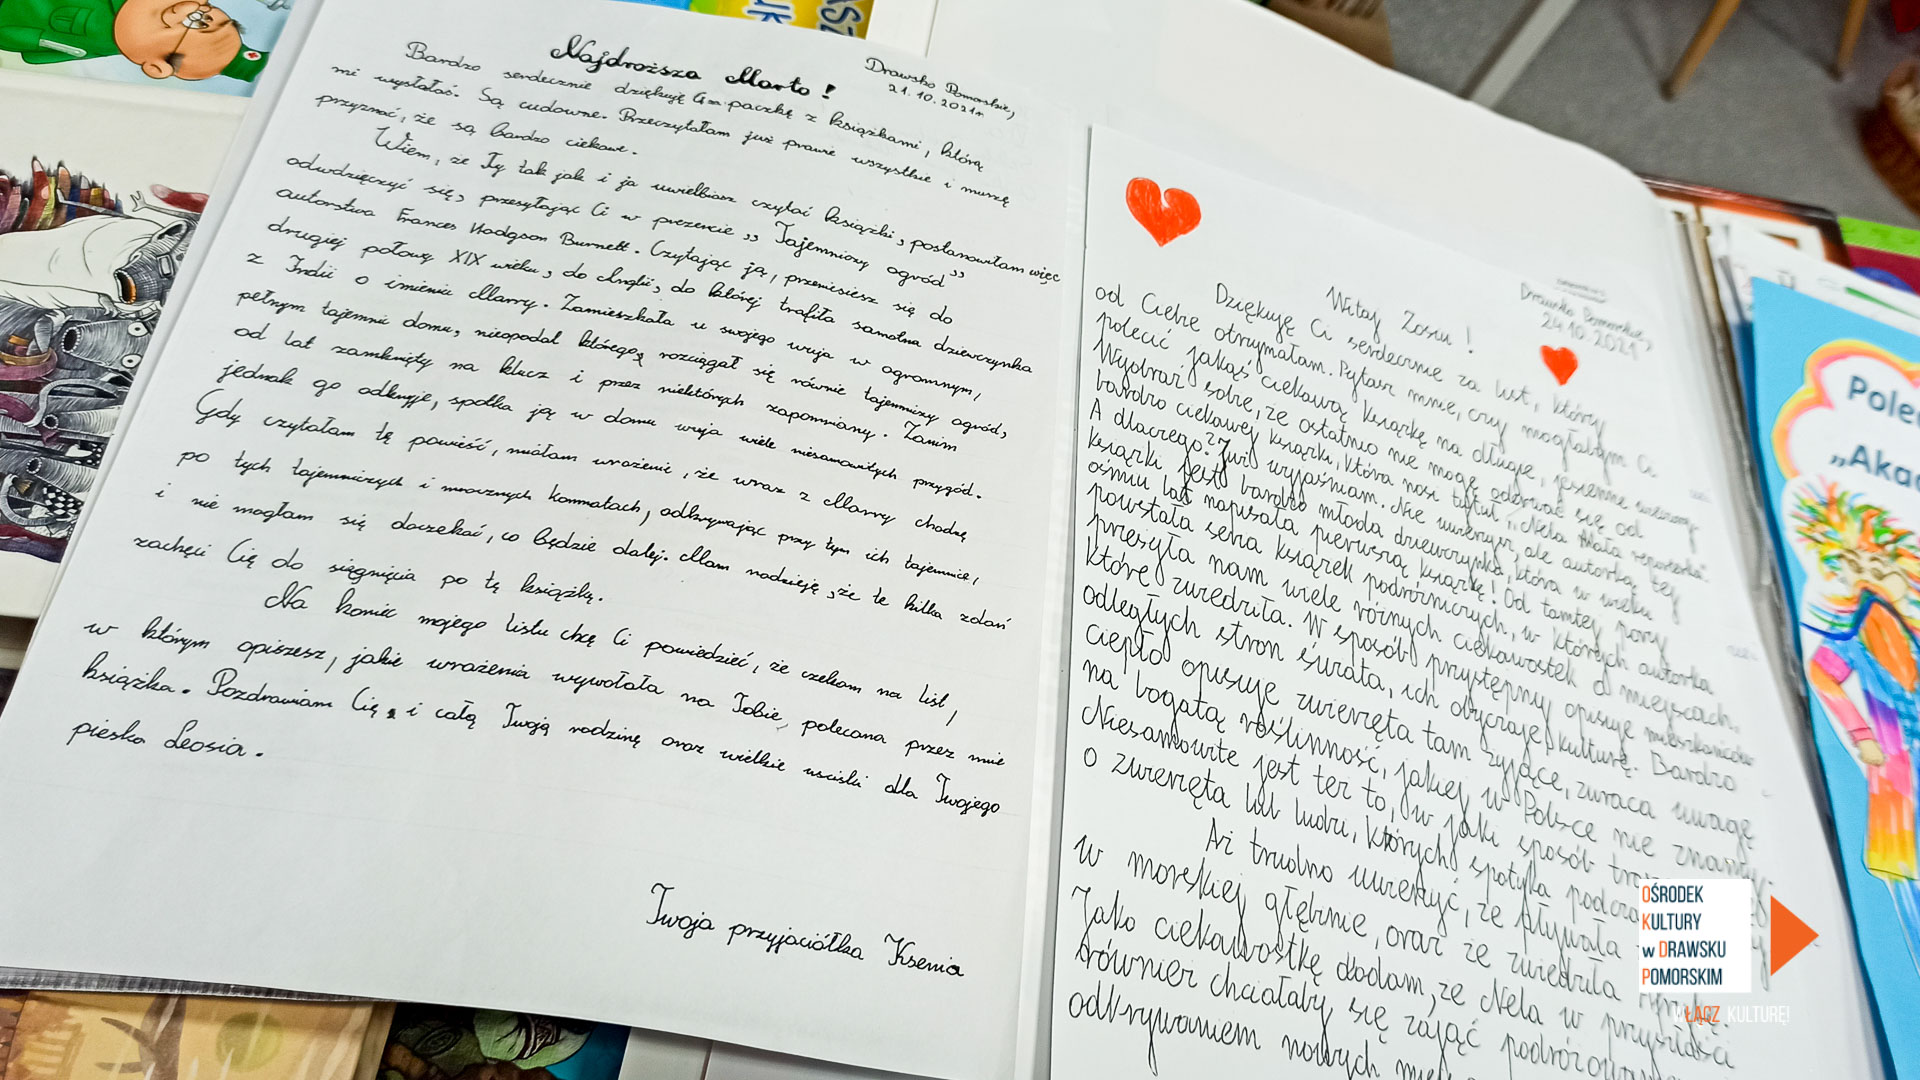 Drawsko Pomorskie,
21.10.2021r
Najdroższa Marto!
Bardzo serdecznie dziękuję Ci za paczkę z książkami, którą
mi wysłałaś. Są cudowne. Przeczytałam już prawie wszystkie i muszę
przyznać, że są bardzo ciekawe.
Wiem, że Ty tak jak i ja uwielbiasz czytać książki, postanowiłam więc
odwdzięczyć się, przesyłając Ci w prezencie ,, Tajemniczy ogród ”
autorstwa Frances Hodgson Burnett. Czytając ją, przeniesiesz się do
drugiej połowy XIX wieku, do Anglii, do której trafiła samotna dziewczynka
z Indii o imieniu Marry. Zamieszkała u swojego wuja w ogromnym,
pełnym tajemnic domu, nieopodal którego rozciągał się równie tajemniczy ogród,
od lat zamknięty na klucz i przez niektórych zapomniany. Zanim
jednak go odkryje, spotka ją w domu wuja wiele niesamowitych przygód.
Gdy czytałam tę powieść, miałam wrażenie, że wraz z Marry chodzę
po tych tajemniczych i mrocznych komnatach, odkrywając przy tym ich tajemnice,
i nie mogłam się doczekać, co będzie dalej. Mam nadzieję, że te kilka zdań
zachęci Cię do sięgnięcia po tę książkę.
Na koniec mojego listu chcę Ci powiedzieć, że czekam na list,
w którym opiszesz, jakie wrażenia wywołała na Tobie, polecana przez mnie
książka. Pozdrawiam Cię i całą Twoją rodzinę oraz wielkie uściski dla Twojego
pieska Leosia.
Twoja przyjaciółka Ksenia
Drawsko Pomorskie,
24.10.2021
Witaj Zosiu!
Dziękuję Ci serdecznie za list, który
od Ciebie otrzymałam. Pytasz mnie, czy mogłabym Ci
polecić jakąś ciekawą książkę na długie, jesienne wieczory
Wyobraź sobie, że ostatnio nie mogę oderwać się od
bardzo ciekawej książki, która nosi tytuł „Nela Mała reporterka”.
A dlaczego? Już wyjaśniam. Nie uwierzysz, ale autorką tej
książki jest bardzo młoda dziewczynka, która w wieku
ośmiu lat napisała pierwszą książkę! Od tamtej pory
powstała seria książek podróżniczych, w których autorka
przesyła nam wiele różnych ciekawostek o miejscach,
które zwiedziła. W sposób przystępny opisuje mieszkańców
odległych stron świata, ich obyczaje, kulturę. Bardzo
ciepło opisuje zwierzęta tam żyjące, zwraca uwagę
na bogatą roślinność, jakiej w Polsce nie znamy.
Niesamowite jest też to, w jaki sposób
o zwierzęta lub ludzi, których spotyka
Aż trudno uwierzyć, że pływała
w morskiej głębinie, oraz że zwiedziła
Jako ciekawostkę dodam, że Nela w przyszłości
również chciałaby się zająć
odkrywaniem nowych
Pole
„Aka
OŚRODEK
KULTURY
w DRAWSKU
POMORSKIM
WŁĄCZ KULTURĘ!